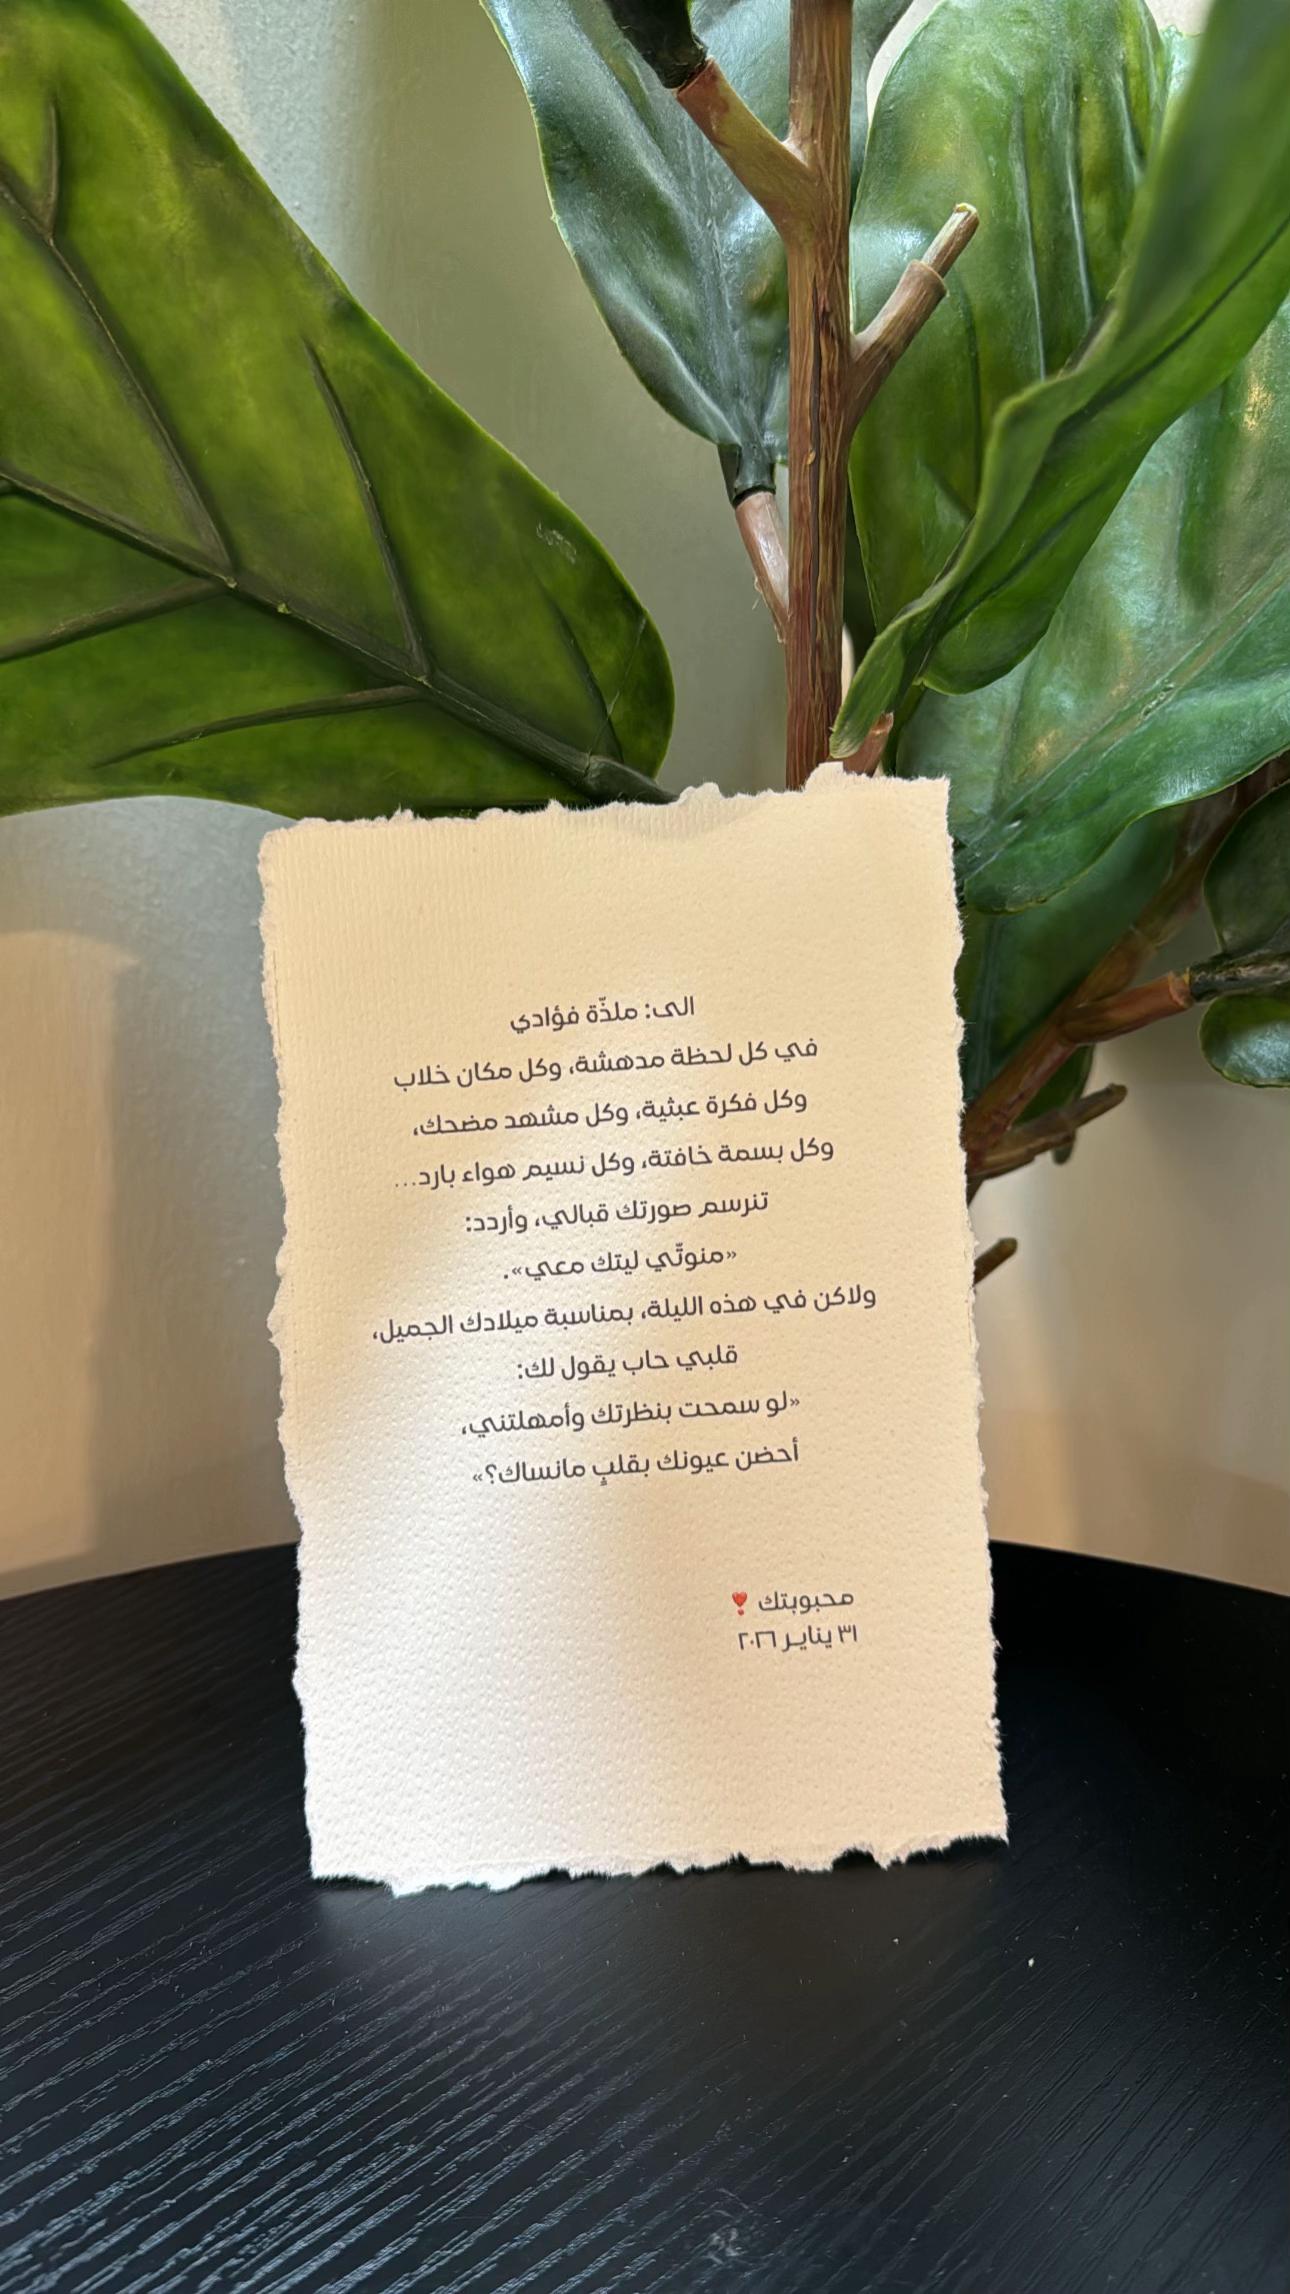 الى: ملذّة فؤادي
في كل لحظة مدهشة، وكل مكان خلاب
وكل فكرة عبثية، وكل مشهد مضحك،
وكل بسمة خافتة، وكل نسيم هواء بارد...
تنرسم صورتك قبالي، وأردد:
«منوتّي ليتك معي».
ولاكن في هذه الليلة، بمناسبة ميلادك الجميل،
قلبي حاب يقول لك:
«لو سمحت بنظرتك وأمهلتني،
أحضن عيونك بقلبٍ مانساك؟»
محبوبتك ❣️
٣١ يناير ٢٠٢٦